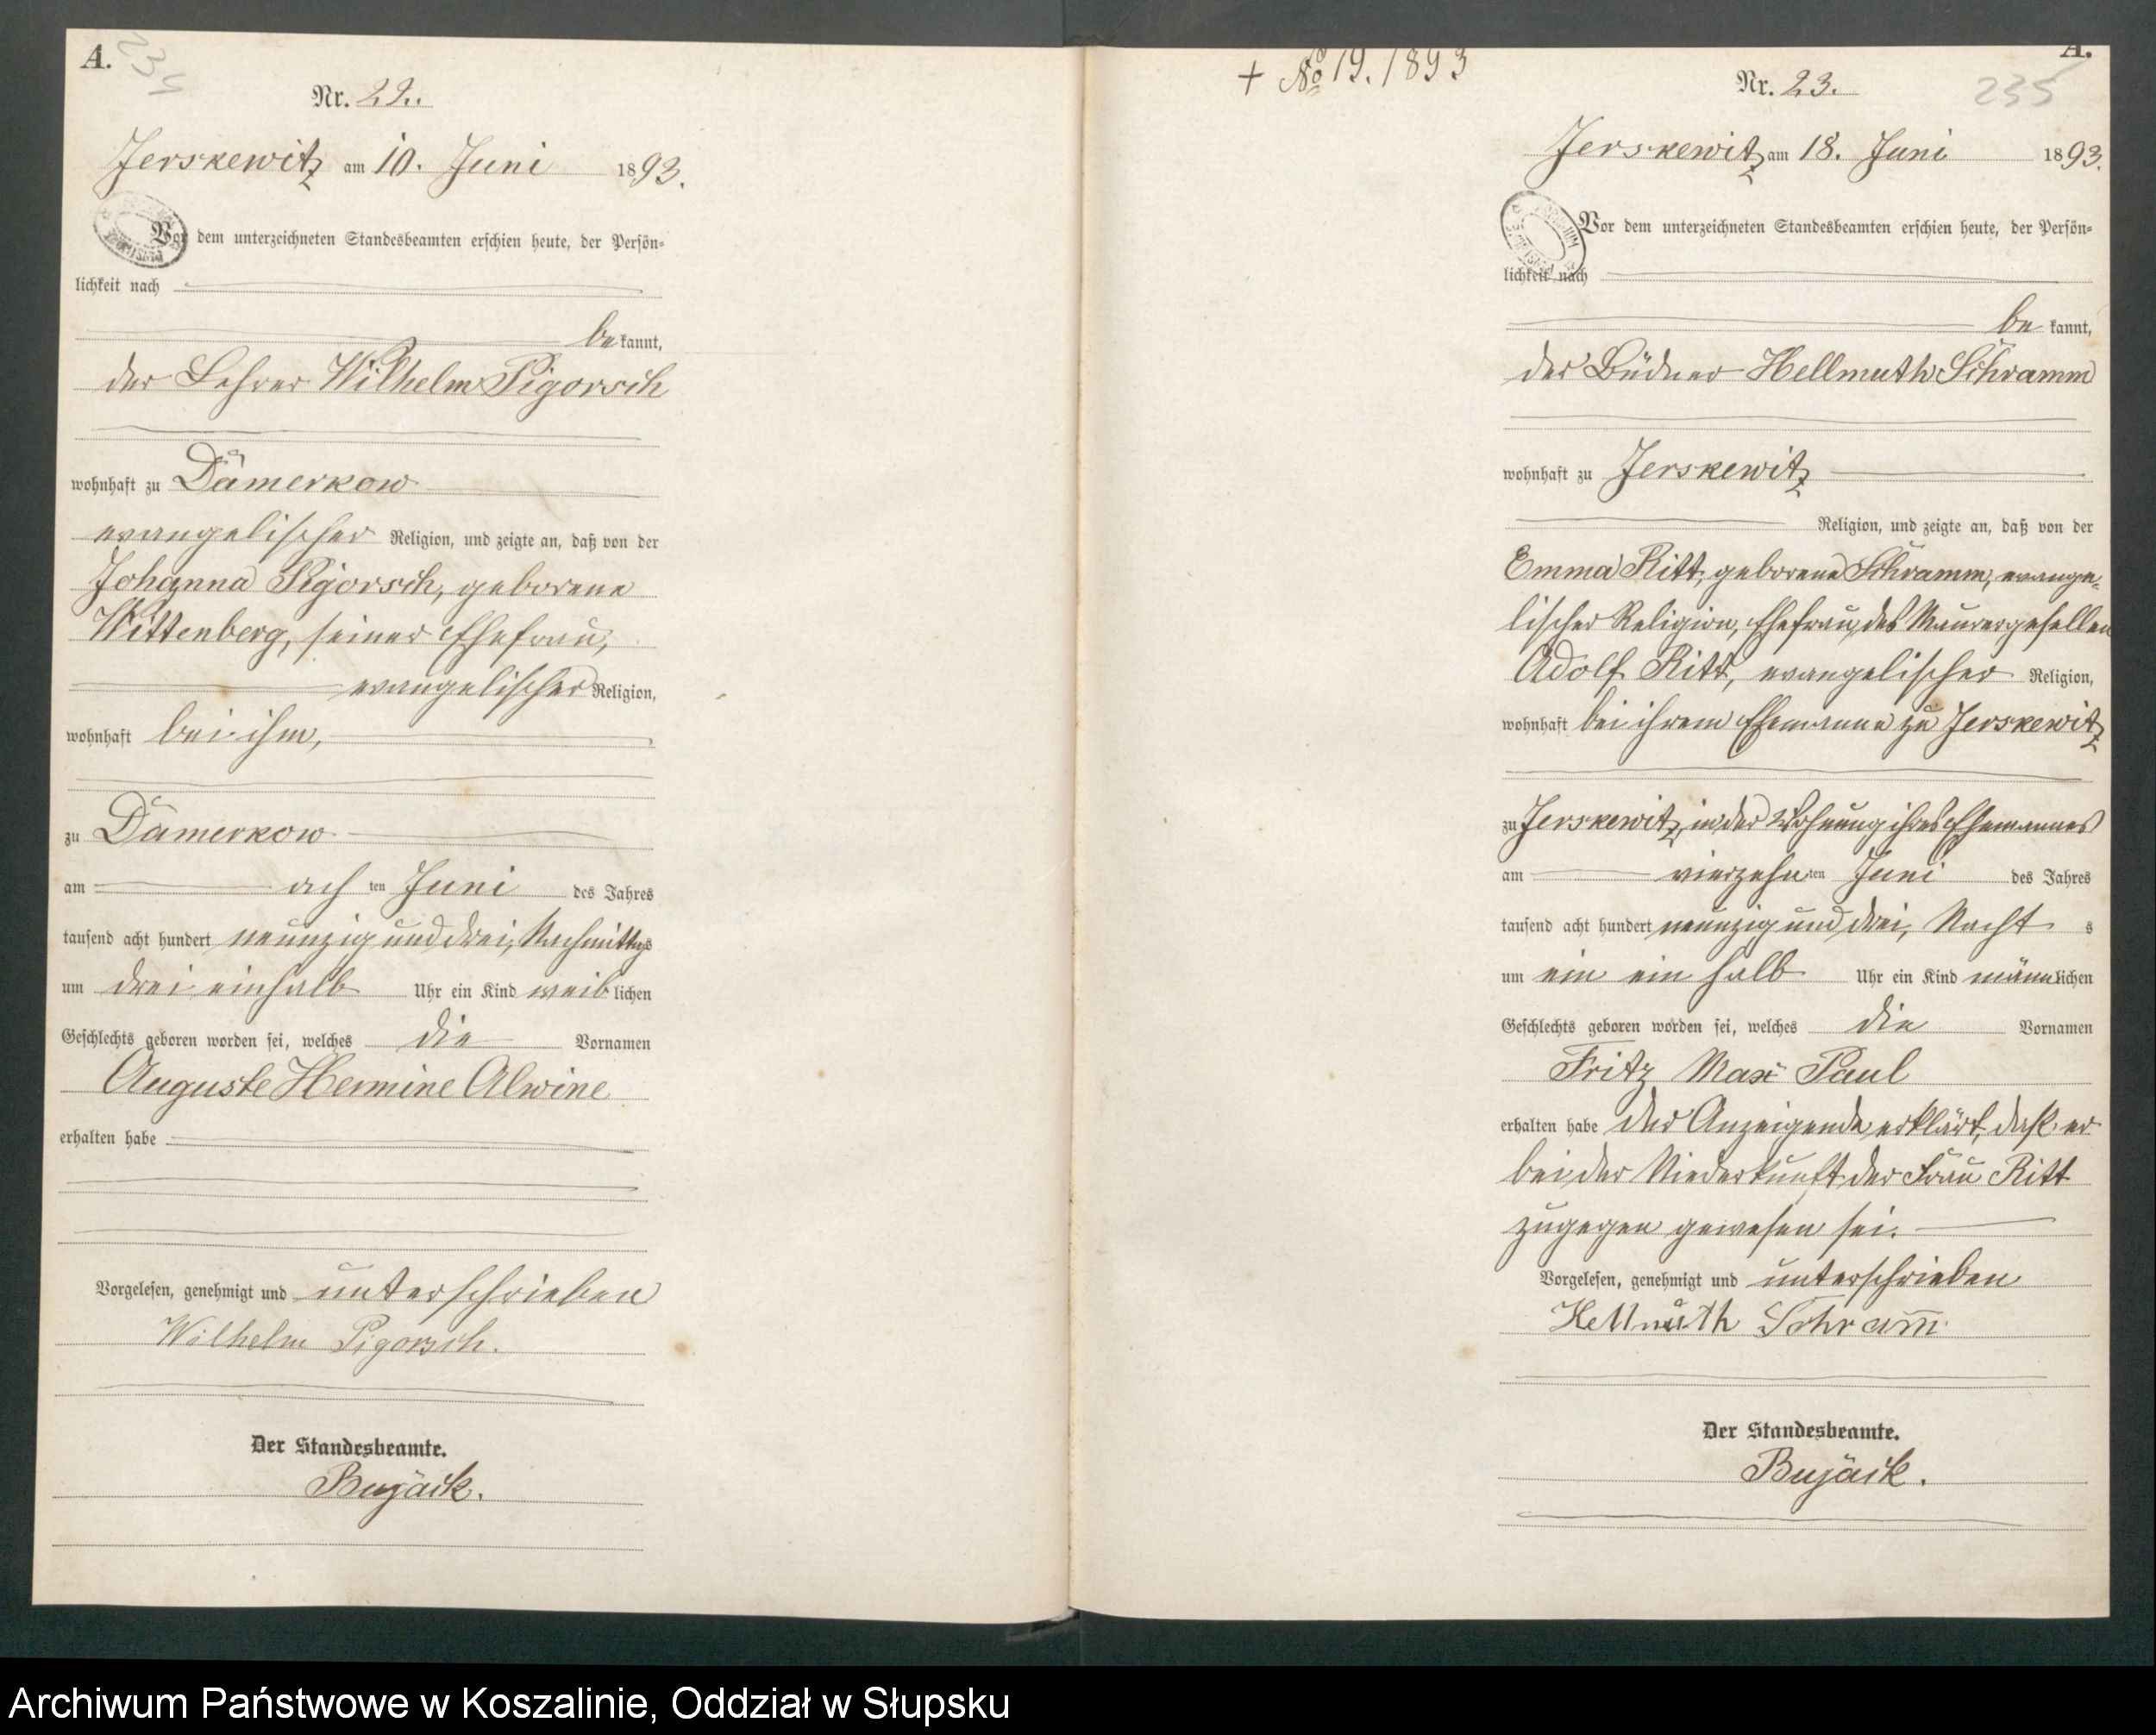 A.
234
Nr. 22.
Jerskewitz am 10. Juni 1893.
Vor dem unterzeichneten Standesbeamten erschien heute, der Persön-
lichkeit nach
be kannt,
der Lehrer Wilhelm Pigorsch
wohnhaft zu Dämerkow
evangelischer Religion, und zeigte an, daß von der
Johanna Pigorsch, geborene
Wittenberg, seiner Ehefrau,
evangelischer Religion,
wohnhaft bei ihm,
zu Dämerkow
am ach ten Juni des Jahres
tausend acht hundert neunzig und drei, Nachmittags
um drei einhalb Uhr ein Kind weib lichen
Geschlechts geboren worden sei, welches die Vornamen
Auguste Hermine Alwine
erhalten habe
Vorgelesen, genehmigt und unterschrieben
Wilhelm Pigorsch.
Der Standesbeamte.
Bujack.
+ No 19. 1893
A.
235
Nr. 23.
Jerskewitz am 18. Juni 1893.
Vor dem unterzeichneten Standesbeamten erschien heute, der Persön-
lichkeit nach
be kannt,
der Büdner Hellmuth Schramm
wohnhaft zu Jerskewitz
Religion, und zeigte an, daß von der
Emma Ritt, geborene Schramm, evange-
lischer Religion, Ehefrau des Maurergesellen
Adolf Ritt, evangelischer Religion,
wohnhaft bei ihrem Ehemanne zu Jerskewitz
zu Jerskewitz, in der Wohnung ihres Ehemannes
am vierzehn ten Juni des Jahres
tausend acht hundert neunzig und drei, Nacht s
um ein ein halb Uhr ein Kind männ lichen
Geschlechts geboren worden sei, welches die Vornamen
Fritz Max Paul
erhalten habe Der Anzeigende erklärt, daß er
bei der Niederkunft der Frau Ritt
zugegen gewesen sei.
Vorgelesen, genehmigt und unterschrieben
Hellmuth Schram̅
Der Standesbeamte.
Bujack.
Archiwum Państwowe w Koszalinie, Oddział w Słupsku